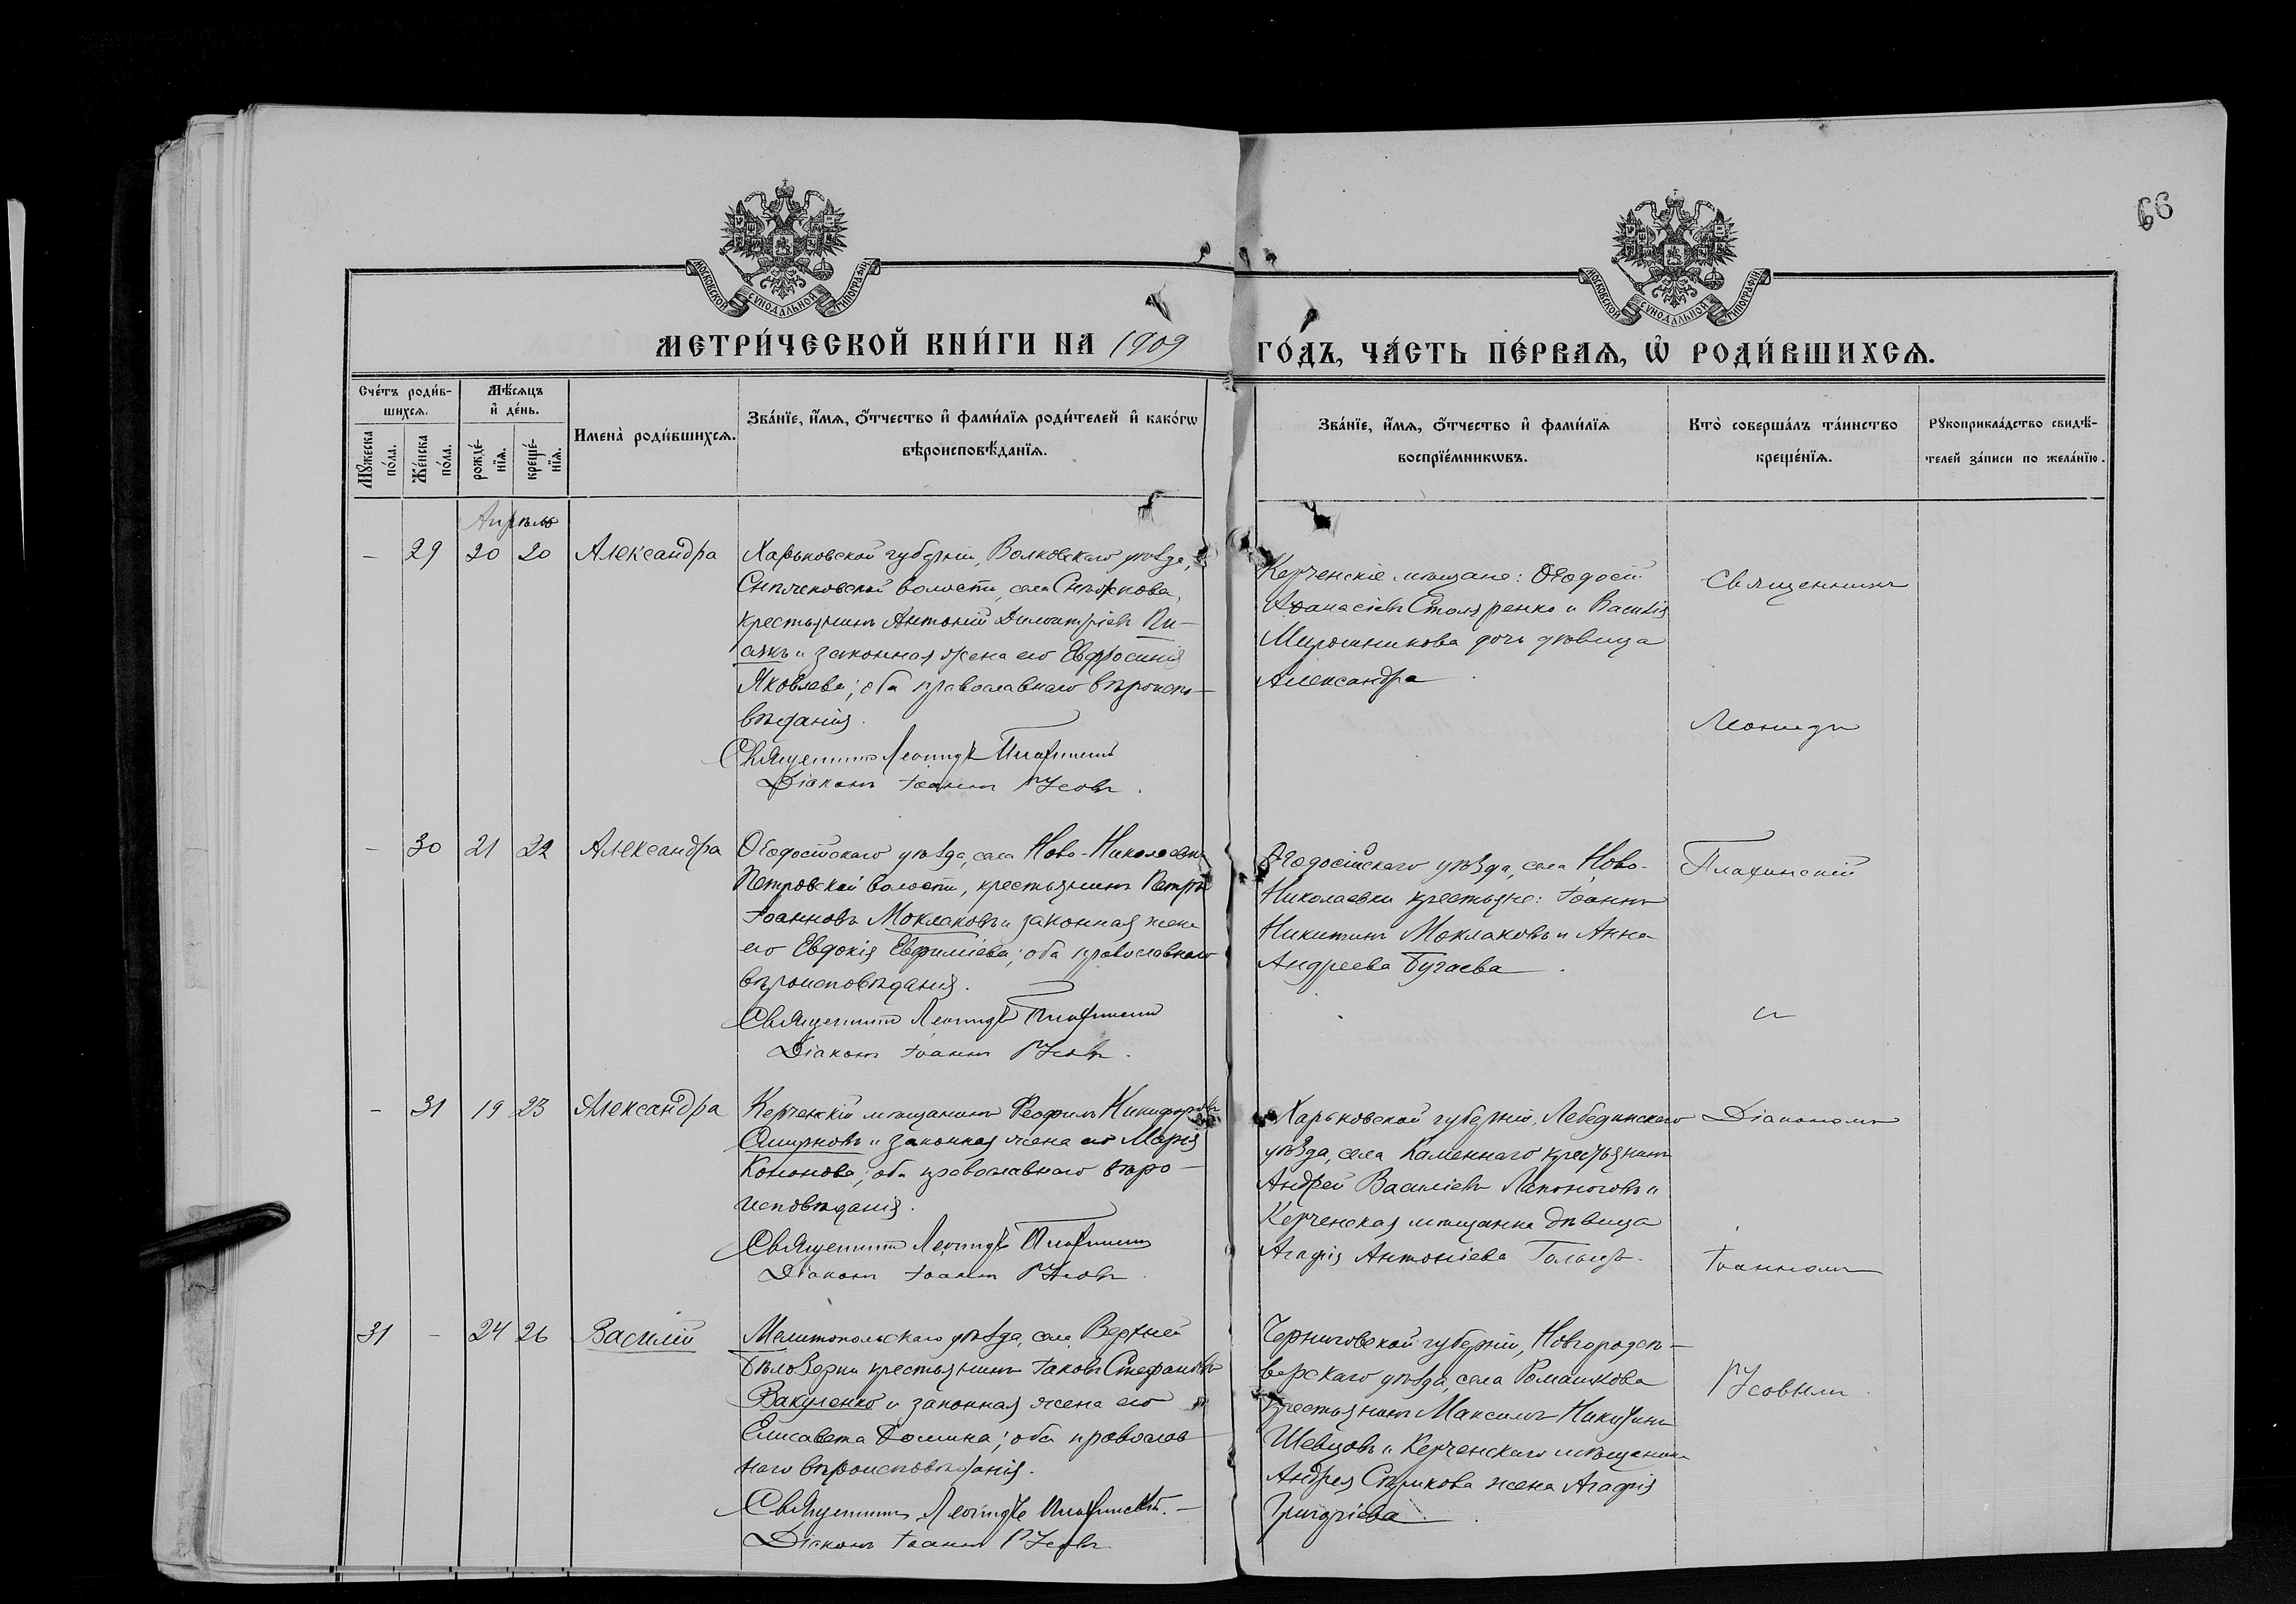 66
МОСКОВСКОЙ СѴНОДАЛЬНОЙ ТИПОГРАФІИ.
МОСКОВСКОЙ СѴНОДАЛЬНОЙ ТИПОГРАФІИ.
МЕТРИ́ЧЕСКОЙ КНИ́ГИ НА 1909 ГО́ДЪ, ЧА́СТЬ ПЕ́РВАѦ, Ѡ҆ РОДИ́ВШИХСѦ.
Сче́тъ роди́в-
шихсѧ.
Мꙋ́жеска по́ла.
Же́нска по́ла.
Мѣ́сѧцъ
и҆ де́нь.
рожде́-
нїѧ.
креще́-
нїѧ.
Имена̀ роди́вшихсѧ.
Зва́нїе, и҆́мѧ, ѻ҆́тчество и҆ фами́лїѧ роди́телей и҆ како́гѡ
вѣроисповѣ́данїѧ.
Зва́нїе, и҆́мѧ, ѻ҆́тчество и҆ фами́лїѧ
воспрїе́мникѡвъ.
Кто̀ соверша́лъ та́инство
креще́нїѧ.
Рꙋкоприкла́дство свидѣ́-
телей за́писи по жела́нїю.
Апрѣль
– 29 20 20 Александра
Харьковской губерніи, Волковскаго уѣзда,
волости, села Снѣжкова,
крестьянинъ Антоній Димитріевъ Пи-
акъ и законная жена его Евфросинія
Яковлева; оба православнаго вѣроиспо-
вѣданія.
Священникъ Леонидъ Плахинскій
Діаконъ Іоаннъ Усовъ.
Керченскіе мѣщане: Ѳеодосій
Аѳанасіевъ Столяренко и Василія
Мирошникова дочь дѣвица
Александра
Священникъ
Леонидъ
– 30 21 22 Александра
Ѳеодосійскаго уѣзда, села Ново-Николаевки
Петровской волости, крестьянинъ Петръ
Іоанновъ Моклаковъ и законная жена
его Евдокія Евфиміева; оба православнаго
вѣроисповѣданія.
Священникъ Леонидъ Плахинскій
Діаконъ Іоаннъ Усовъ.
Ѳеодосійскаго уѣзда, села Ново-
Николаевки крестьяне: Іоаннъ
Никитинъ Моклаковъ и Анна
Андреева Бугаева.
Плахинскій
съ
– 31 19 23 Александра
Керченскій мѣщанинъ Ѳеофилъ Никифоровъ
Смирновъ и законная жена его Марія
Кононова; оба православнаго вѣро-
исповѣданія.
Священникъ Леонидъ Плахинскій
Діаконъ Іоаннъ Усовъ.
Харьковской губерніи, Лебединскаго
уѣзда, села Каменнаго крестьянинъ
Андрей Василіевъ Лапоноговъ и
Керченская мѣщанка дѣвица
Агафія Антоніева
Діакономъ
Іоанномъ
31 – 24 26 Василій
Мелитопольскаго уѣзда, села Верхней
Бѣлозерки крестьянинъ Іаковъ Стефановъ
Вакуленко и законная жена его
Елисавета Ѳомина; оба православ-
наго вѣроисповѣданія.
Священникъ Леонидъ Плахинскій.
Діаконъ Іоаннъ Усовъ.
Черниговской губерніи, Новгородсѣ-
верскаго уѣзда, села Ромашкова
крестьянинъ Максимъ Никитинъ
Шевцовъ и Керченскаго мѣщанина
Андрея Спѣшкова жена Агафія
Григоріева.
Усовымъ